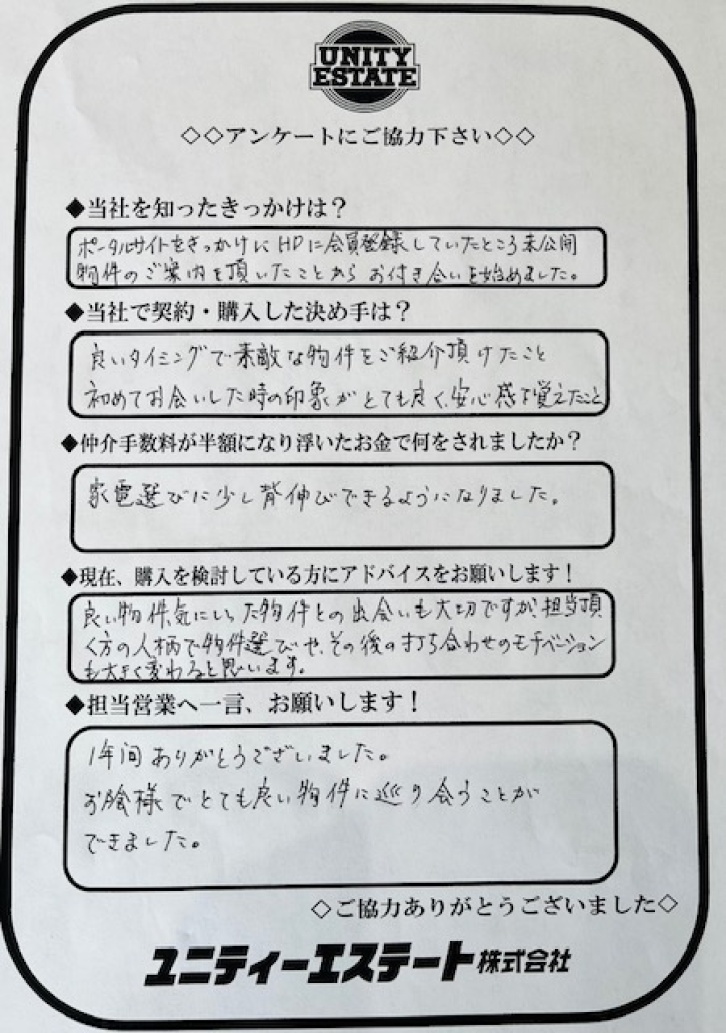 UNITY
ESTATE
◇◇アンケートにご協力下さい◇◇
◆当社を知ったきっかけは？
ポータルサイトをきっかけにHPに会員登録していたところ未公開
物件のご案内を頂いたことからお付き合いを始めました。
◆当社で契約・購入した決め手は？
良いタイミングで素敵な物件をご紹介頂けたこと
初めてお会いした時の印象がとても良く、安心感を覚えたこと
◆仲介手数料が半額になり浮いたお金で何をされましたか？
家電選びに少し背伸びできるようになりました。
◆現在、購入を検討している方にアドバイスをお願いします！
良い物件、気に入った物件との出会いも大切ですが、担当頂
く方の人柄で物件選びや、その後の打ち合わせのモチベーション
も大きく変わると思います。
◆担当営業へ一言、お願いします！
1年間ありがとうございました。
お陰様でとても良い物件に巡り会うことが
できました。
◇ご協力ありがとうございました◇
ユニティーエステート株式会社